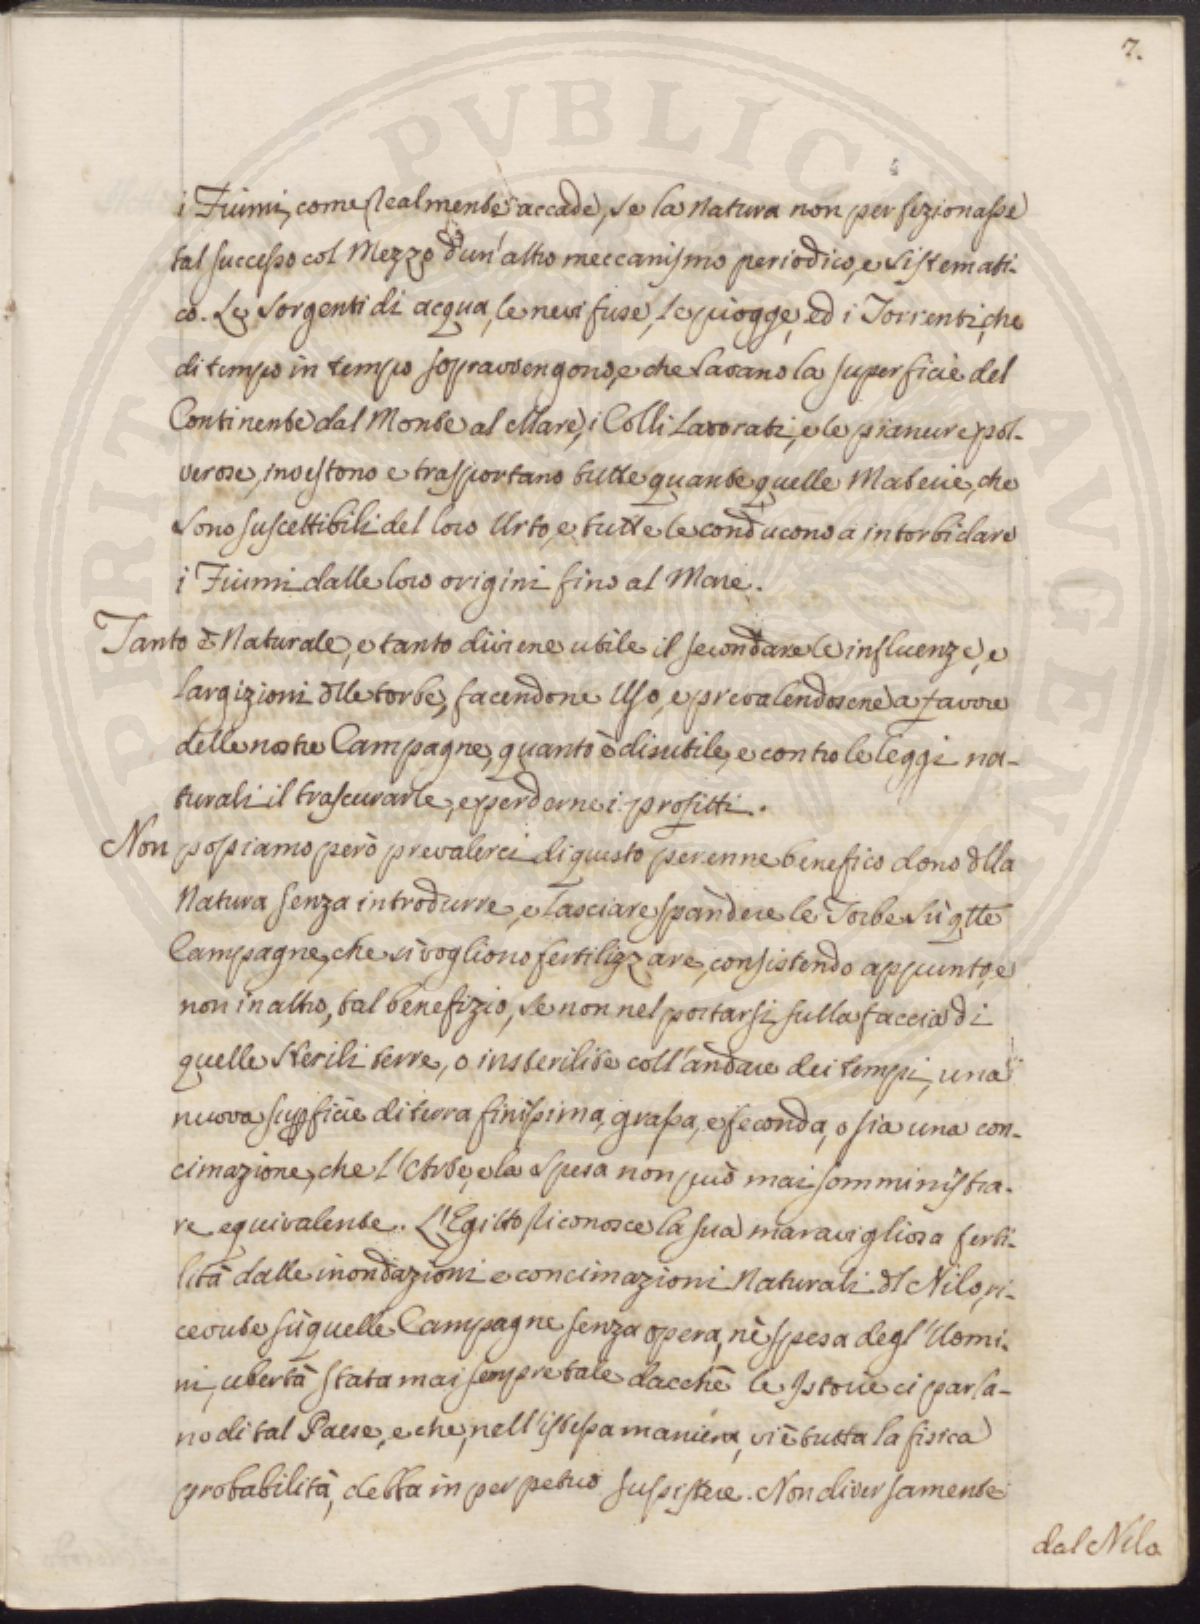 7.
i Fiumi, come realmente accade, se la Natura non perfezionasse
tal successo col Mezzo d'un'altro meccanismo periodico, e sistemati-
co. Le Sorgenti di acqua, le nevi fuse, le piogge, ed i Torrenti, che
di tempo in tempo sopravvengono, e che lavano la superficie del
Continente dal Monte al Mare, i Colli lavorati, e le pianure pol-
verose, investono e trasportano tutte quante quelle Materie, che
sono suscettibili del loro Urto, e tutte le conducono a intorbidare
i Fiumi dalle loro origini fino al Mare.
Tanto è Naturale, e tanto diviene utile il secondare le influenze, e
largizioni dlle torbe, facendone Uso, e prevalendosene a favore
delle nostre Campagne, quanto è disutile, e contro le leggi na-
turali il trascurarle, e perderne i profitti.
Non possiamo però prevalerci di questo perenne benefico dono dlla
Natura senza introdurre, e lasciare spandere le Torbe sù qlle
Campagne, che si vogliono fertilizzare, consistendo appunto, e
non in altro, tal benefizio, se non nel portarsi sulla faccia di
quelle sterili terre, o insterilite coll'andare dei tempi, una
nuova supficie di terra finissima, grassa, e feconda, o sia una con-
cimazione, che l'Arte, e la spesa non può mai somministra-
re equivalente. L'Egitto riconosce la sua maravigliosa ferti-
lità dalle inondazioni e concimazioni Naturali dl Nilo, ri-
cevute sù quelle Campagne senza opera, nè spesa degl'Uomi-
ni, ubertà stata mai sempre tale dacchè le Istorie ci parla-
no di tal Paese, e che, nell'istessa maniera, vi è tutta la fisica
probabilità, debba in perpetuo sussistere. Non diversamente
dal Nilo
PVBLICA
PERITAT
AVGENT